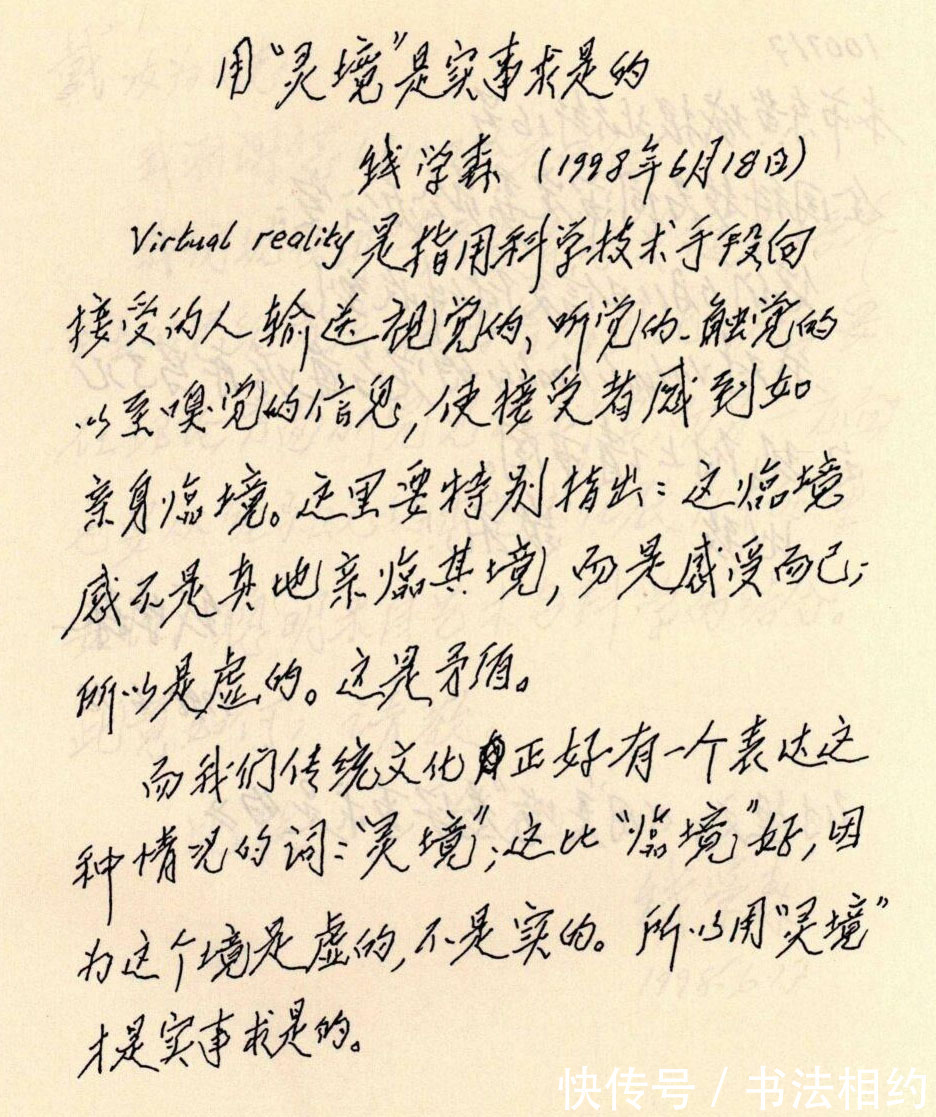 用“灵境”是实事求是的
钱学森 (1998年6月18日)
Virtual reality 是指用科学技术手段向
接受的人输送视觉的、听觉的、触觉的
以至嗅觉的信息，使接受者感到如
亲身临境。这里要特别指出：这临境
感不是真地亲临其境，而是感受而已；
所以是虚的。这是矛盾。
而我们传统文化正好有一个表达这
种情况的词：“灵境”；这比“临境”好，因
为这个境是虚的，不是实的。所以用“灵境”
才是实事求是的。
快传号 / 书法相约